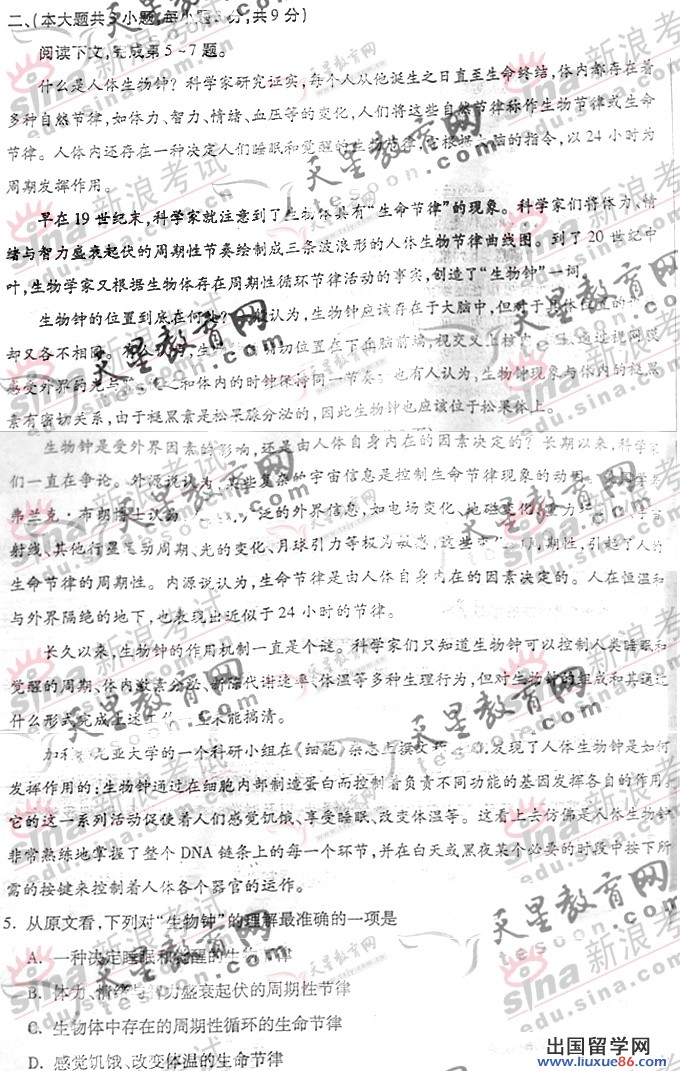 二、(本大题共3小题,每小题3分,共9分)
阅读下文,完成第5~7题。
什么是人体生物钟?科学家研究证实,每个人从他诞生之日直至生命终结,体内都存在着
多种自然节律,如体力、智力、情绪、血压等的变化,人们将这些自然节律称作生物节律或生命
节律。人体内还存在一种决定人们睡眠和觉醒的生物节律,它根据大脑的指令,以24小时为
周期发挥作用。
早在19世纪末,科学家就注意到了生物体具有“生命节律”的现象。科学家们将体力、情
绪与智力盛衰起伏的周期性节奏绘制成三条波浪形的人体生物节律曲线图。到了20世纪中
叶,生物学家又根据生物体存在周期性循环节律活动的事实,创造了“生物钟”一词。
生物钟的位置到底在何处?认为,生物钟应该存在于大脑中,但对于具体位置的
却又各不相同。有人认为,生确切位置在下丘脑前端,视交叉上核通过视网膜
感受外界的光与和体内的时钟保持同一节奏。也有人认为,生物钟现象与体内的褪黑
素有密切关系,由于褪黑素是松果腺分泌的,因此生物钟也应该位于松果体上。
生物钟是受外界因素的影响,还是由人体自身内在的因素决定的?长期以来,科学家
们一直在争论。外源说认为,某些复杂的宇宙信息是控制生命节律现象的动因。
弗兰克·布朗博士认为泛的外界信息,如电场变化、地磁变化、重力
射线、其他行星运动周期、光的变化、月球引力等极为敏感,这些变期性,引起了人的
生命节律的周期性。内源说认为,生命节律是由人体自身内在的因素决定的。人在恒温和
与外界隔绝的地下,也表现出近似于24小时的节律。
长久以来,生物钟的作用机制一直是个谜。科学家们只知道生物钟可以控制人类睡眠和
觉醒的周期、体内激素分泌、新陈代谢速率、体温等多种生理行为,但对生物钟的组成和其通过
什么形式完成上述工作未能搞清。
加利尼亚大学的一个科研小组在《细胞》杂志上撰文,发现了人体生物钟是如何
发挥作用的:生物钟通过在细胞内部制造蛋白而控制着负责不同功能的基因发挥各自的作用。
它的这一系列活动促使着人们感觉饥饿、享受睡眠、改变体温等。这看上去仿佛是人体生物钟
非常熟练地掌握了整个DNA链条上的每一个环节,并在白天或黑夜某个必要的时段中按下所
需的按键来控制着人体各个器官的运作。
5. 从原文看,下列对“生物钟”的理解最准确的一项是
A. 一种决定睡眠和觉醒的生命节律
B. 体力、情绪与智力盛衰起伏的周期性节律
C. 生物体中存在的周期性循环的生命节律
D. 感觉饥饿、改变体温的生命节律
出国留学网
www.liuxue86.com